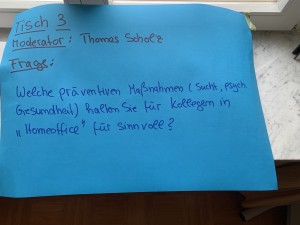 Tisch 3
Moderator: Thomas Scholz
Frage:
Welche präventiven Maßnahmen (Sucht, psych.
Gesundheit) halten Sie für Kollegen in
„Homeoffice" für sinnvoll?